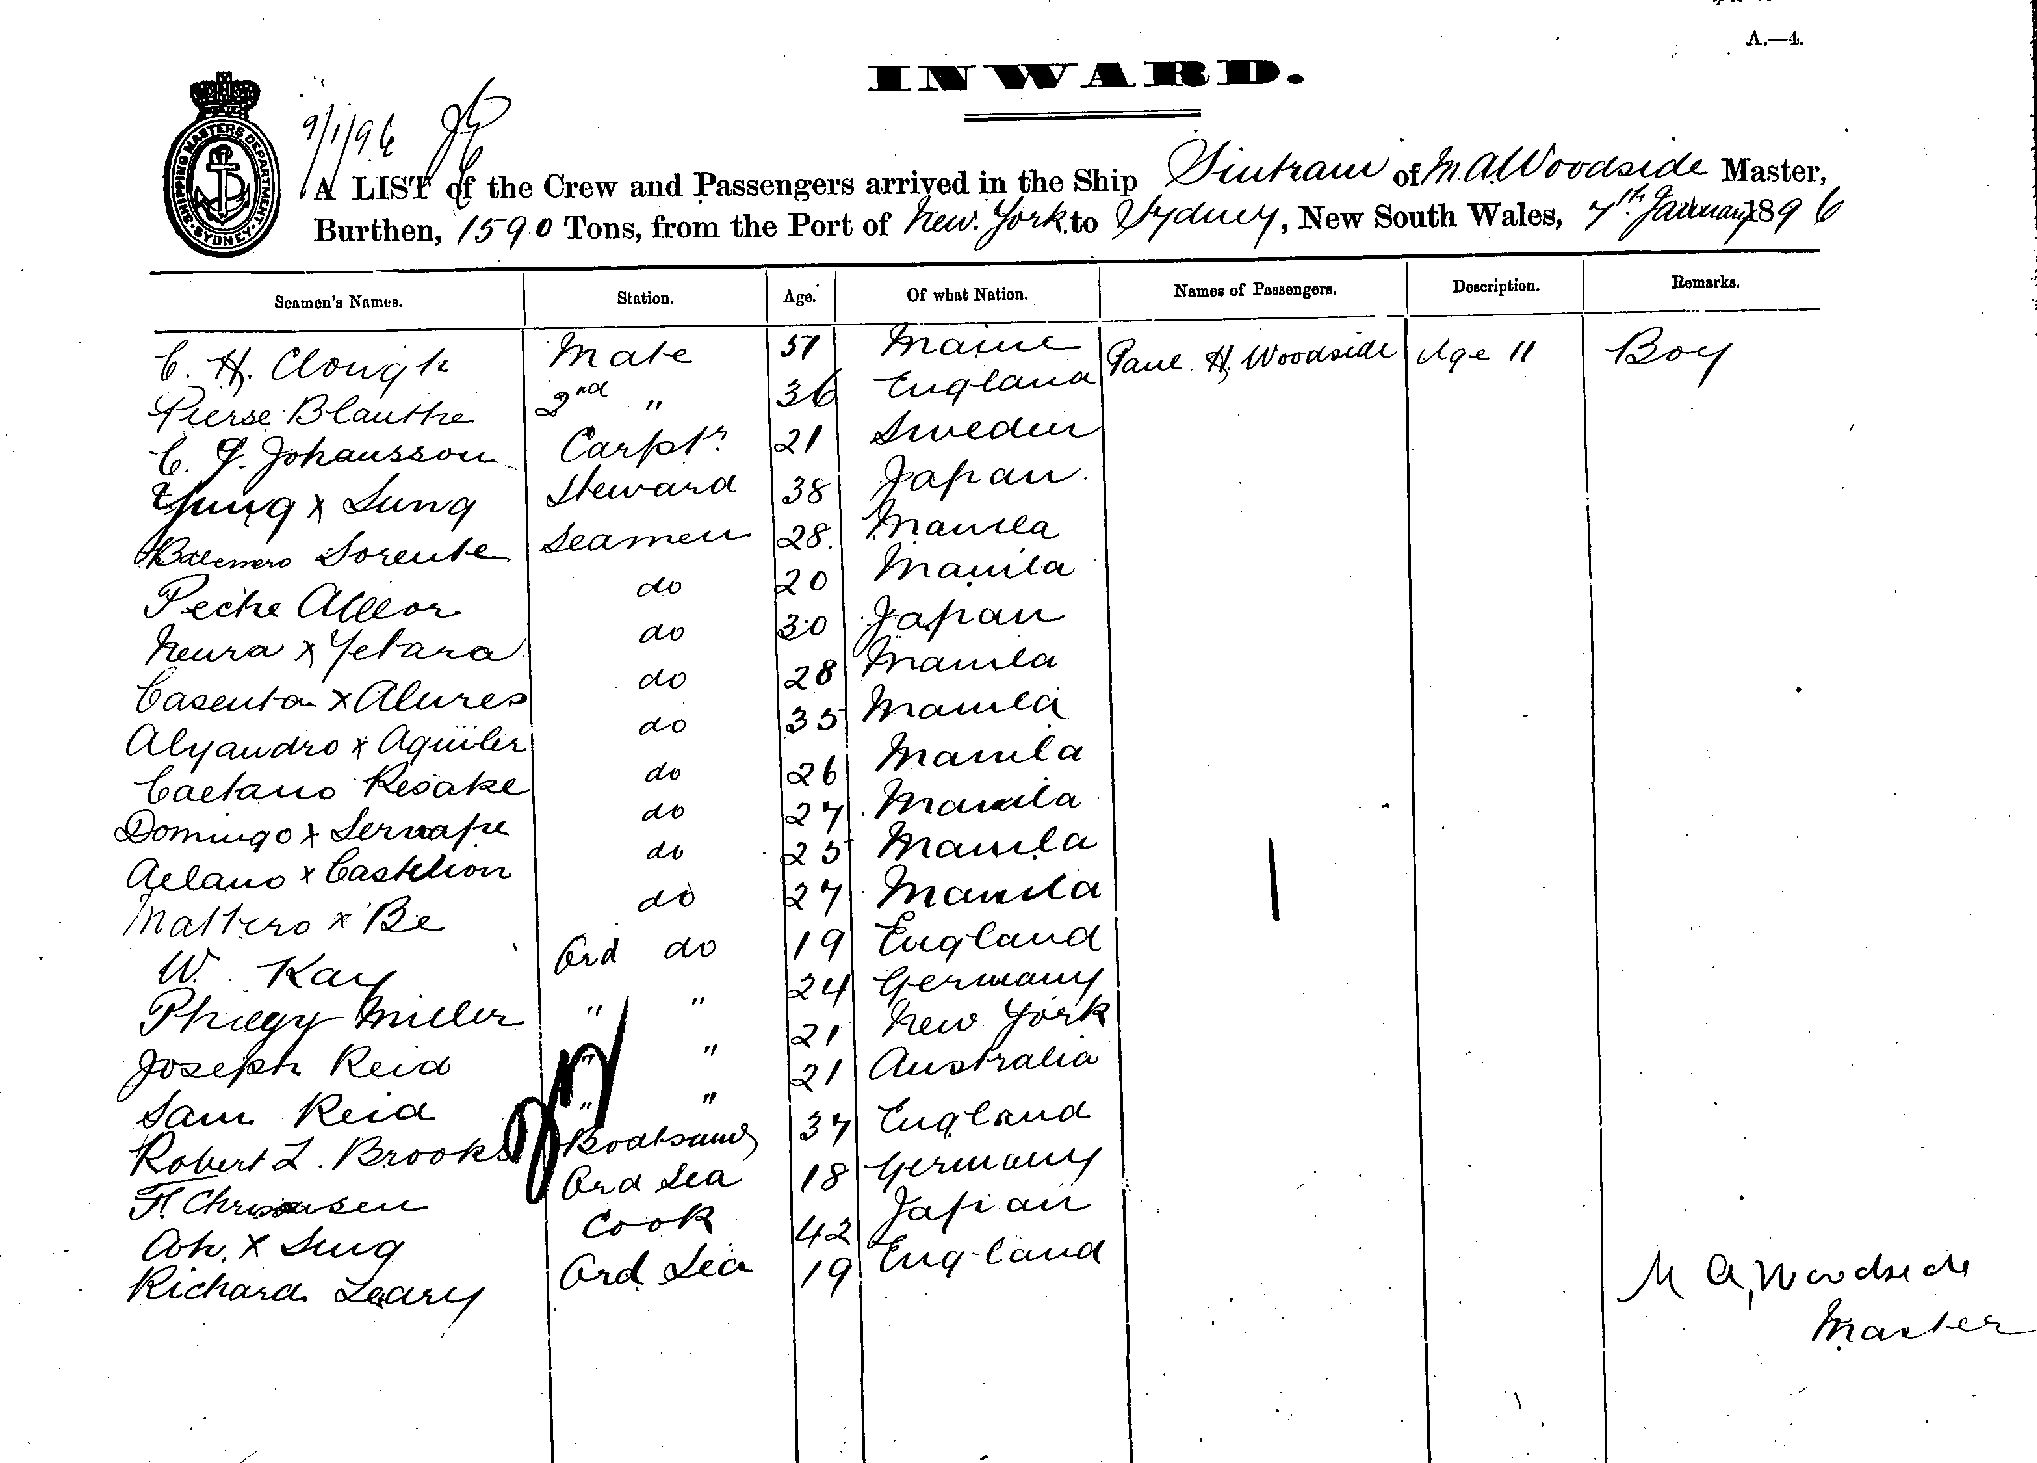 A.—4.
INWARD.
SHIPPING MASTERS DEPARTMENT SYDNEY
9/1/96
A LIST of the Crew and Passengers arrived in the Ship Sintram of M. A. Woodside Master,
Burthen, 1590 Tons, from the Port of New York to Sydney, New South Wales, 7th January 1896
Seamen's Names. Station. Age. Of what Nation. Names of Passengers. Description. Remarks.
C. H. Clough Mate 51 Maine Paul H. Woodside Age 11 Boy
Pierse Blauthe 2nd " 36 England
C. J. Johansson Carptr. 21 Sweden
x Sung Steward 38 Japan
Sorente Seamen 28 Manila
Peche do 20 Manila
Neura x Yetara do 30 Japan
Casenta x Alures do 28 Manila
Alyandro x Aguiler do 35 Manila
Caetano Resake do 26 Manila
Domingo x do 27 Manila
x Castelion do 25 Manila
Mattero x Be do 27 Manila
W. Kay Ord do 19 England
Miller " " 24 Germany
Joseph Reid " " 21 New York
Sam Reid " " 21 Australia
Robert L. Brooks Boatsand 37 England
Ord Sea 18 Germany
Ah. x Sing Cook 42 Japan
Richard Leary Ord Sea 19 England
M A, Woodside
Master